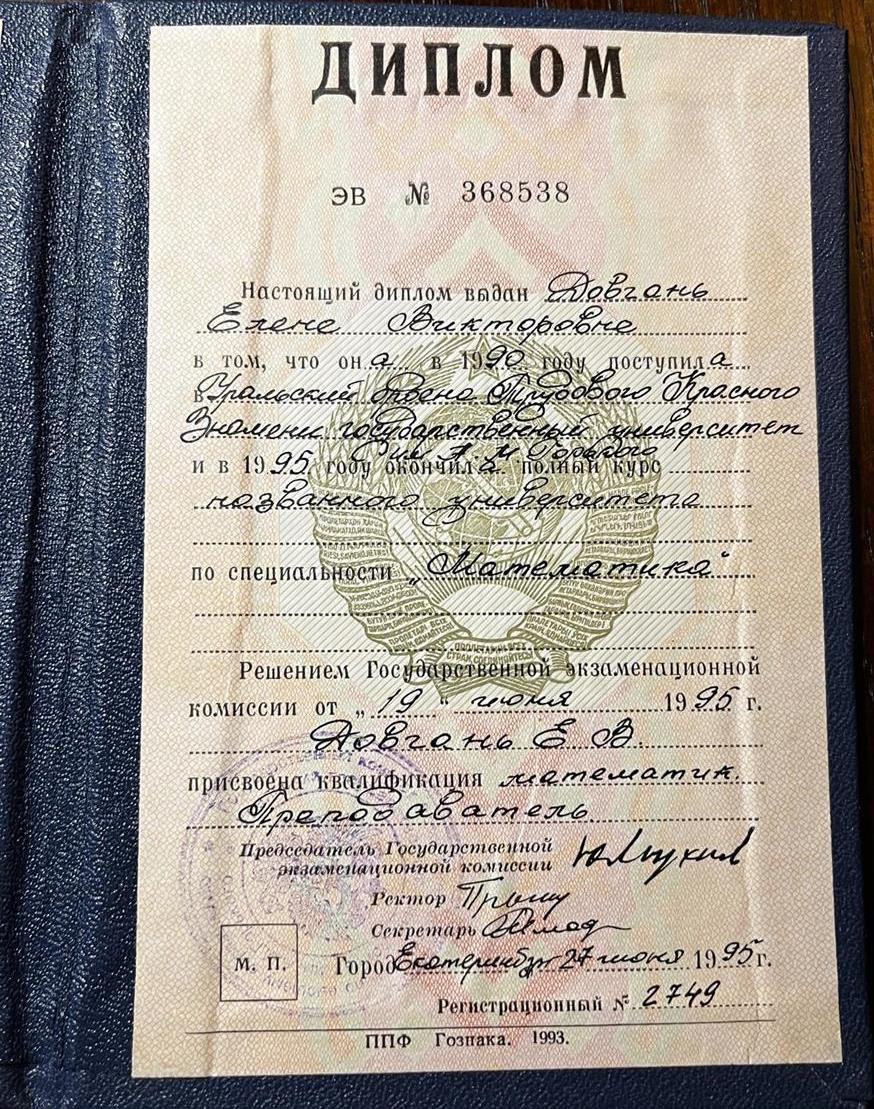 ДИПЛОМ
ЭВ № 368538
Настоящий диплом выдан Довгань
Елене Викторовне
в том, что она в 1990 году поступила
в Уральский ордена Трудового Красного
Знамени государственный университет
им А. М Горького
и в 1995 году окончила полный курс
названного университета
по специальности „Математика"
Решением Государственной экзаменационной
комиссии от „19" июня 1995 г.
Довгань Е В.
присвоена квалификация математик.
Преподаватель.
Председатель Государственной
экзаменационной комиссии
Ректор
Секретарь
М. П.
Город Екатеринбург 27 июня 1995 г.
Регистрационный № 2749
ППФ Гознака. 1993.